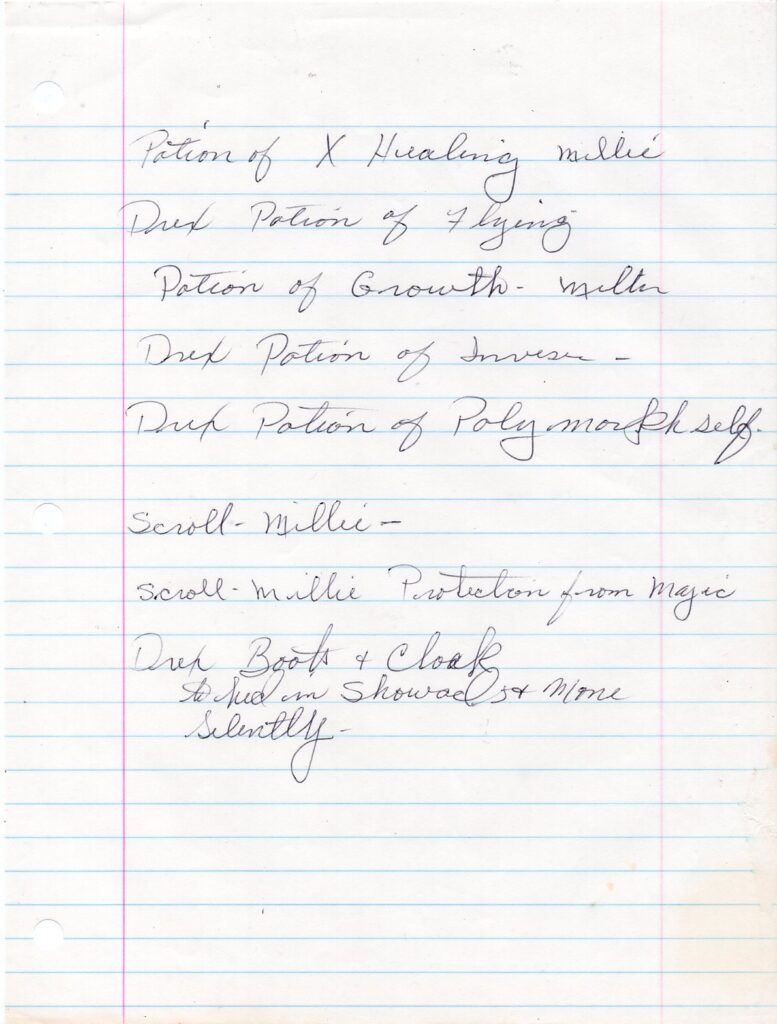 Potion of X Healing Millie
Drex Potion of Flying
Potion of Growth - Milton
Drex Potion of Invese -
Drex Potion of Polymorph self.
Scroll - Millie -
Scroll - Millie Protection from Magic
Drex Boots & Cloak
to hid in Showads & Move
Silently -